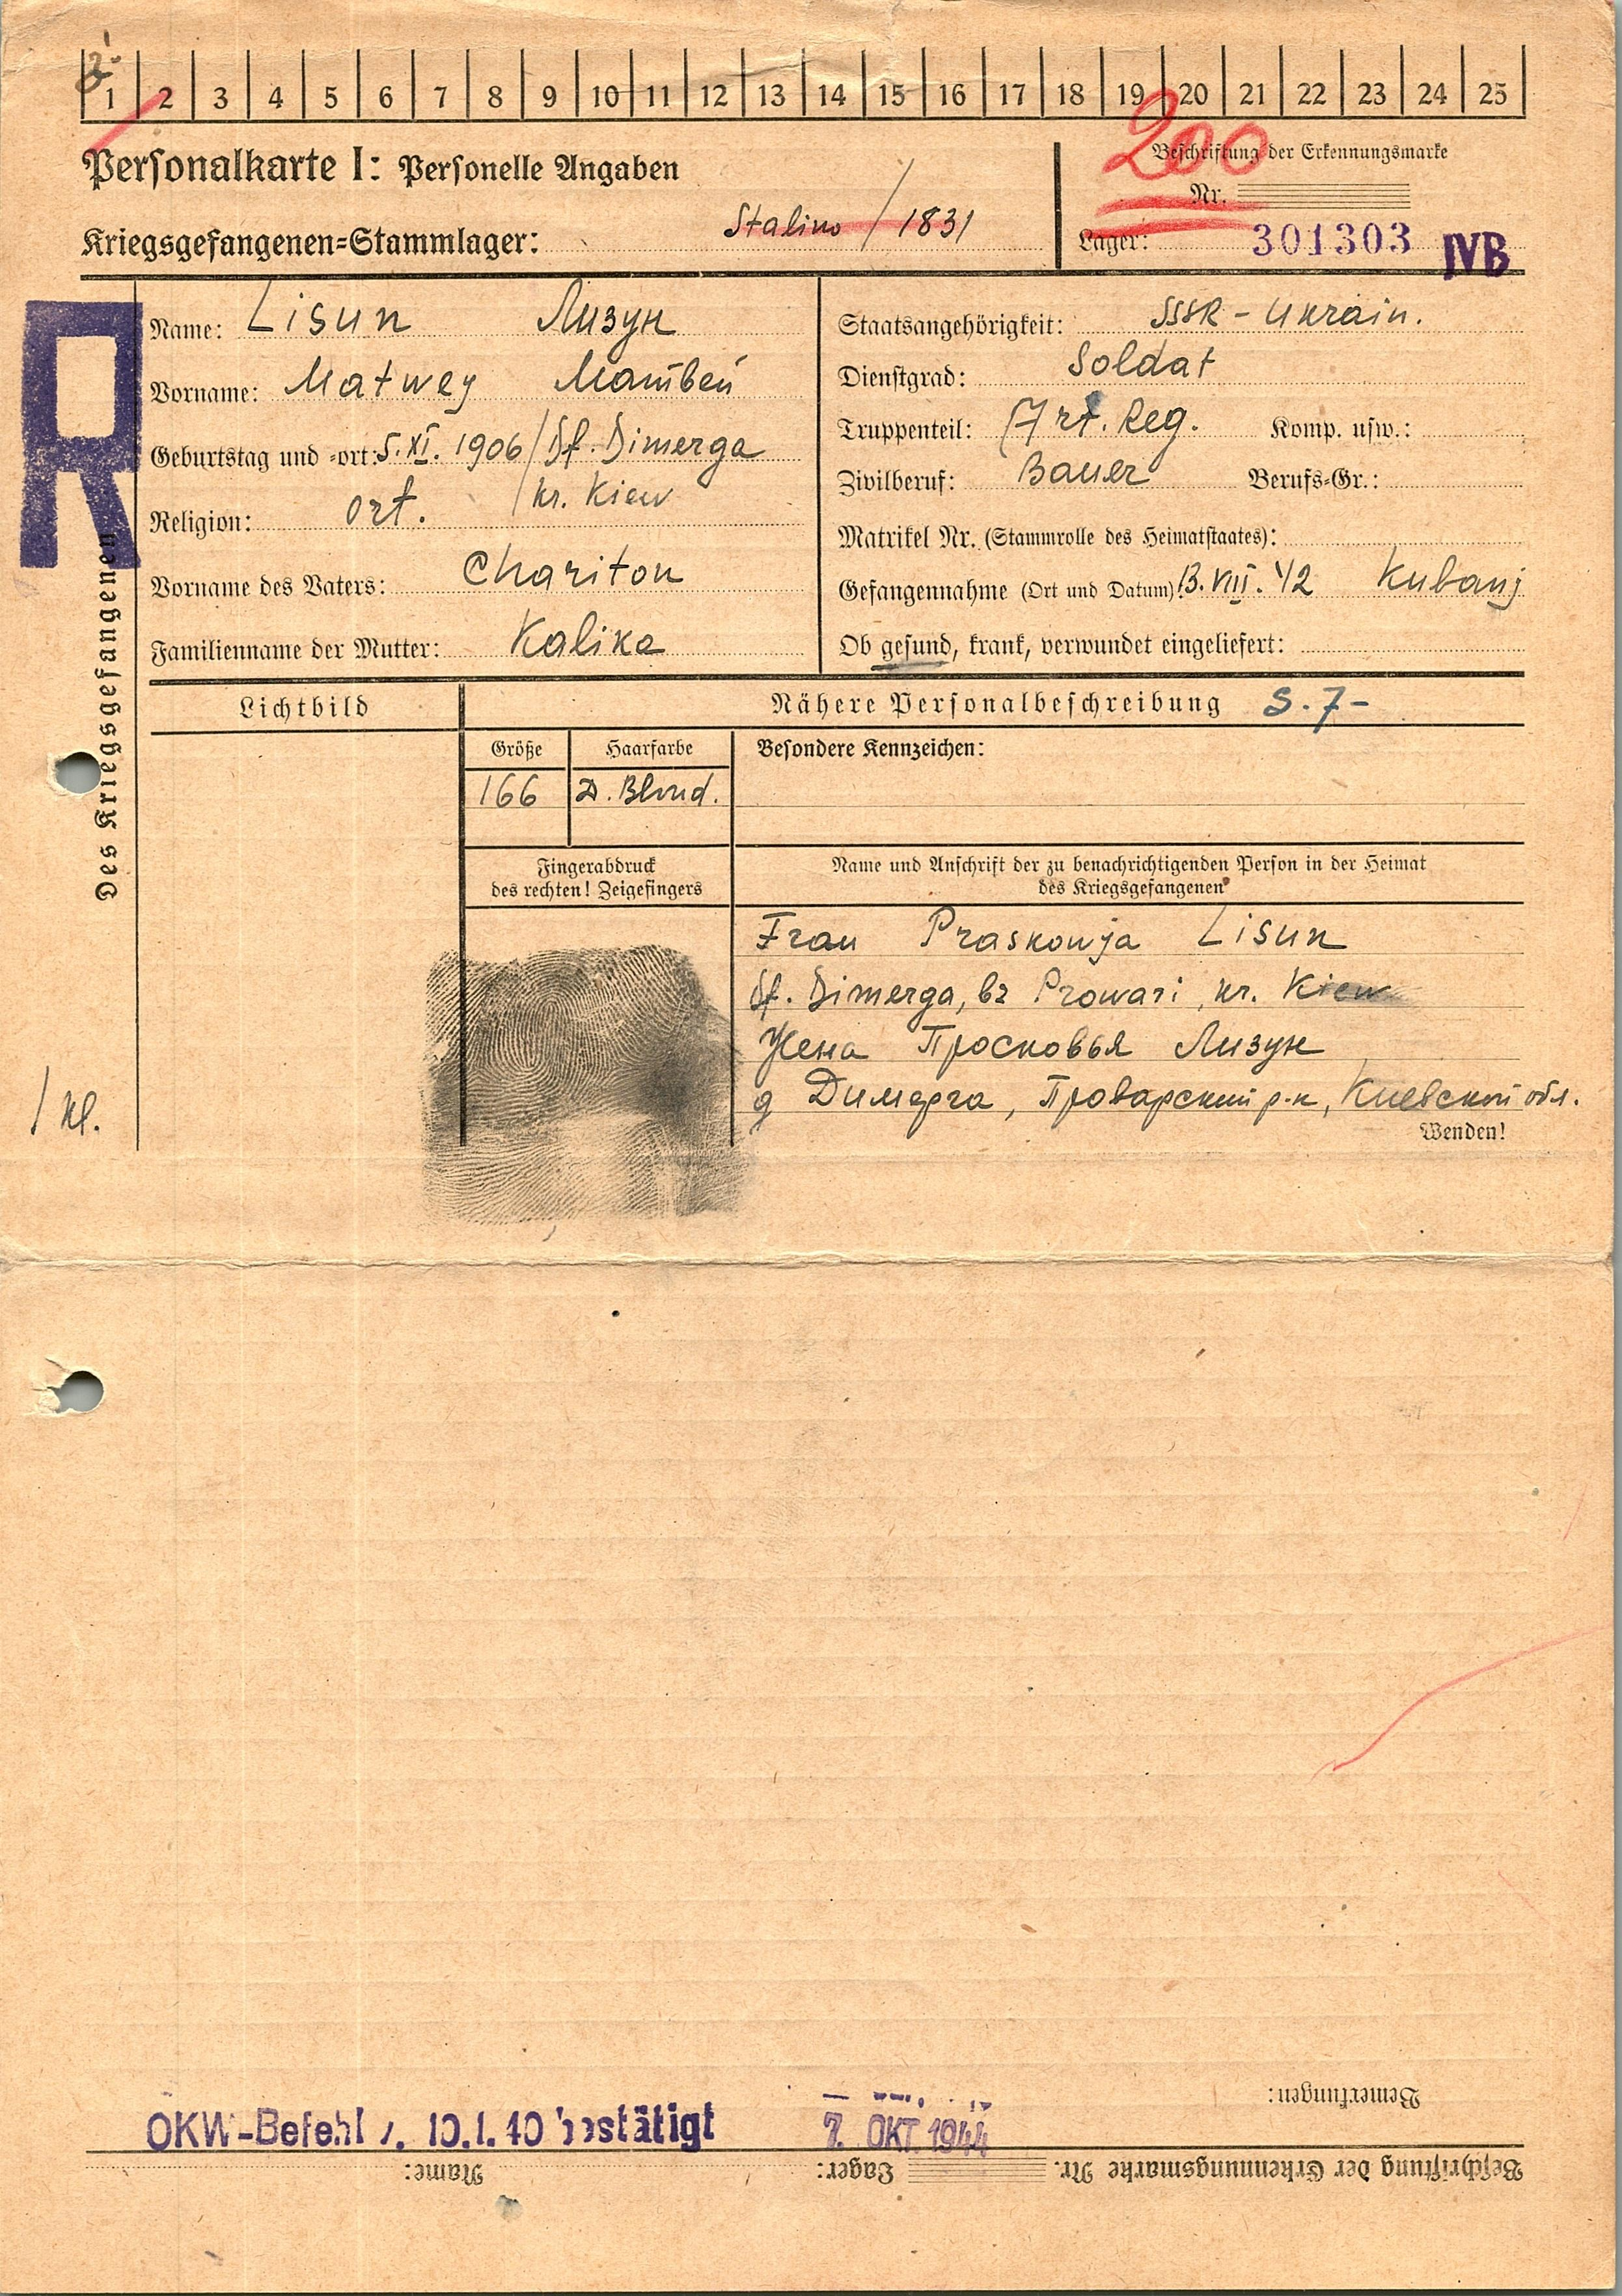 1 2 3 4 5 6 7 8 9 10 11 12 13 14 15 16 17 18 19 20 21 22 23 24 25
200
Personalkarte I: Personelle Angaben
Beschriftung der Erkennungsmarke
Nr.
Kriegsgefangenen=Stammlager: Stalino / 1831
Lager: 301303 IVB
R
Des Kriegsgefangenen
Name: Lisun Лизун
Vorname: Matwey Матвей
Geburtstag und =ort: 5.XI. 1906 / Df. Dimerga
kr. Kiew
Religion: ort.
Vorname des Vaters: Chariton
Familienname der Mutter: Kalika
Staatsangehörigkeit: SSSR - Ukrain.
Dienstgrad: Soldat
Truppenteil: Art. Reg. Komp. usw.:
Zivilberuf: Bauer Berufs=Gr.:
Matrikel Nr. (Stammrolle des Heimatstaates):
Gefangennahme (Ort und Datum): 13. VIII. 42 Kubanj
Ob gesund, krank, verwundet eingeliefert:
Lichtbild
Nähere Personalbeschreibung S. 7-
Größe
Haarfarbe
Besondere Kennzeichen:
166
D. Blond.
Fingerabdruck
des rechten! Zeigefingers
Name und Anschrift der zu benachrichtigenden Person in der Heimat
des Kriegsgefangenen
Frau Praskowja Lisun
Df. Dimerga, bz Prowari, kr. Kiew
Жена Просковья Лизун
д Димерга, Проварский р-н, Киевской обл.
Wenden!
Bemerkungen:
OKW-Befehl v. 10.1.40 bestätigt
7. OKT. 1944
Beschriftung der Erkennungsmarke Nr. Lager: Name: